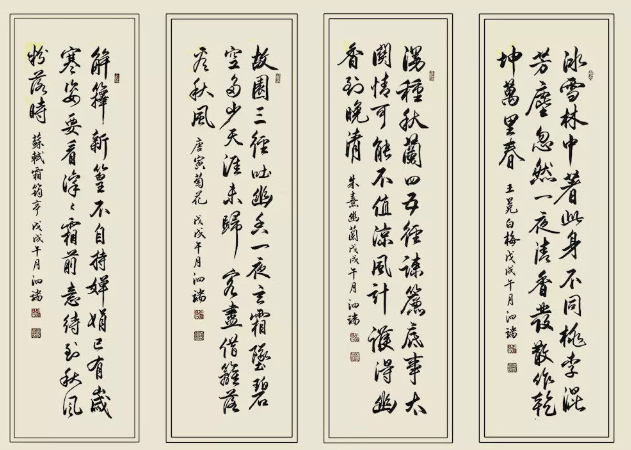 冰雪林中著此身不同桃李混
芳塵忽然一夜清香發散作乾
坤萬里春
王冕白梅戊戌午月泗端
漫種秋蘭四五徑疎簾底事太
關情可能不值涼風計護得幽
香到晚清
朱熹幽蘭戊戌午月泗端
故園三徑吐幽叢一夜玄霜墜碧
空多少天涯未歸客盡借籬落
看秋風
唐寅菊花戊戌午月泗端
解籜新篁不自持嬋娟已有歲
寒姿要看凜〻霜前意待到秋風
粉落時
蘇軾霜筠亭戊戌午月泗端